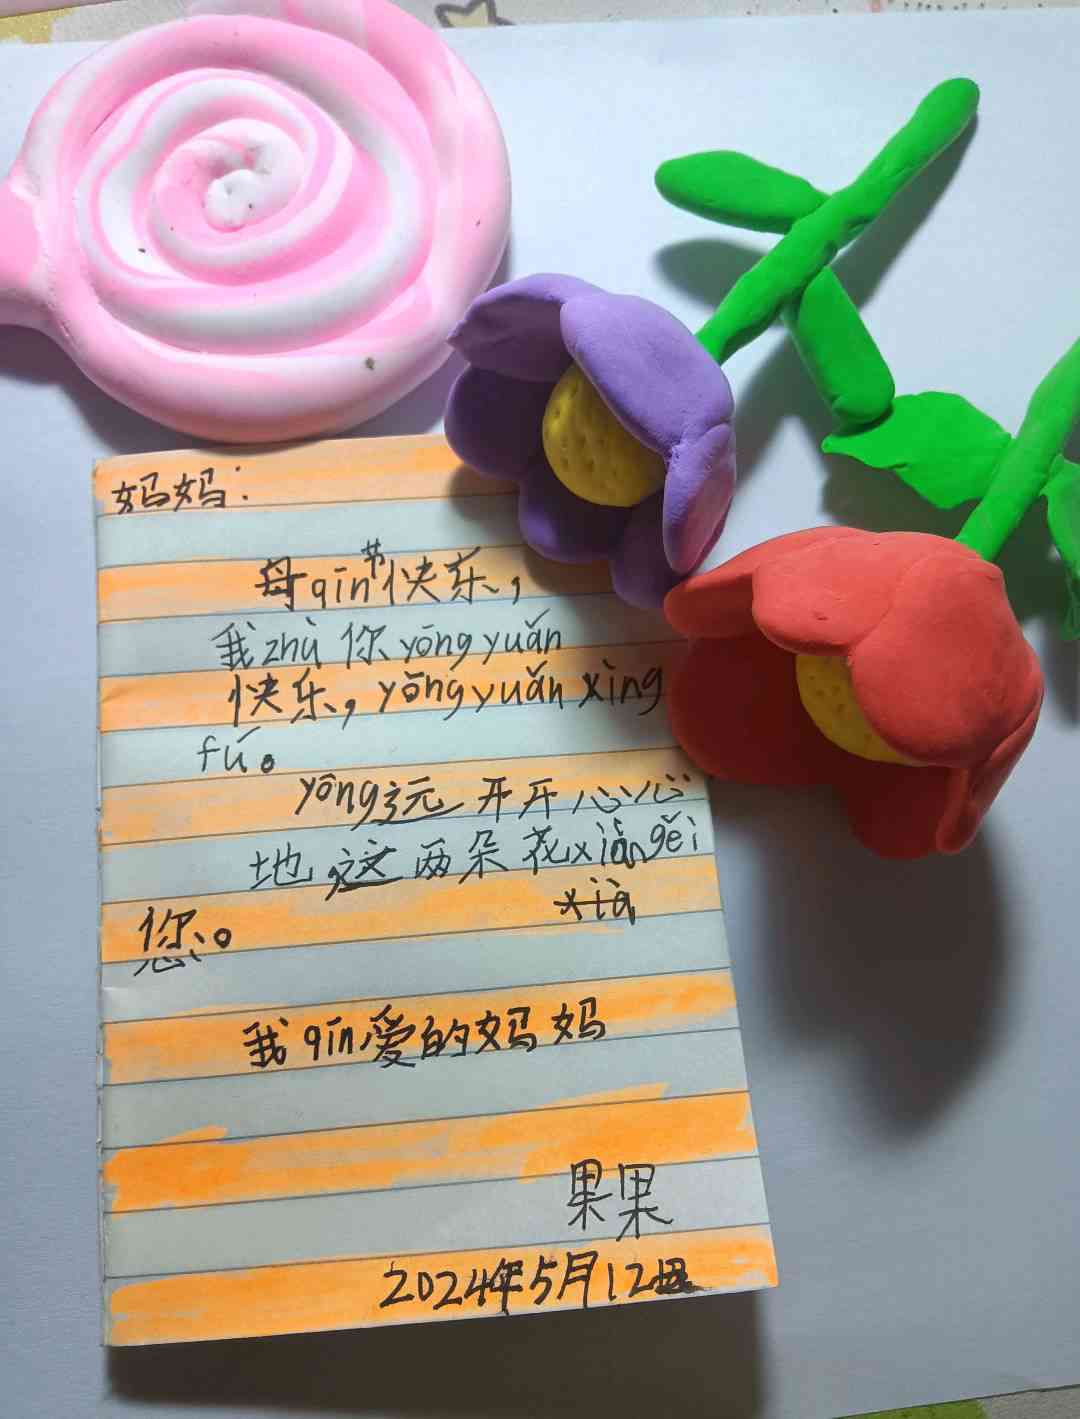 妈妈：
母qīn节快乐，
我zhù你yōngyuǎn
快乐，yōngyuǎnxìng
fú。
yōng远开开心心
地，这两朵花xiàngěi
xià
您。
我qīn爱的妈妈
果果
2024年5月12日